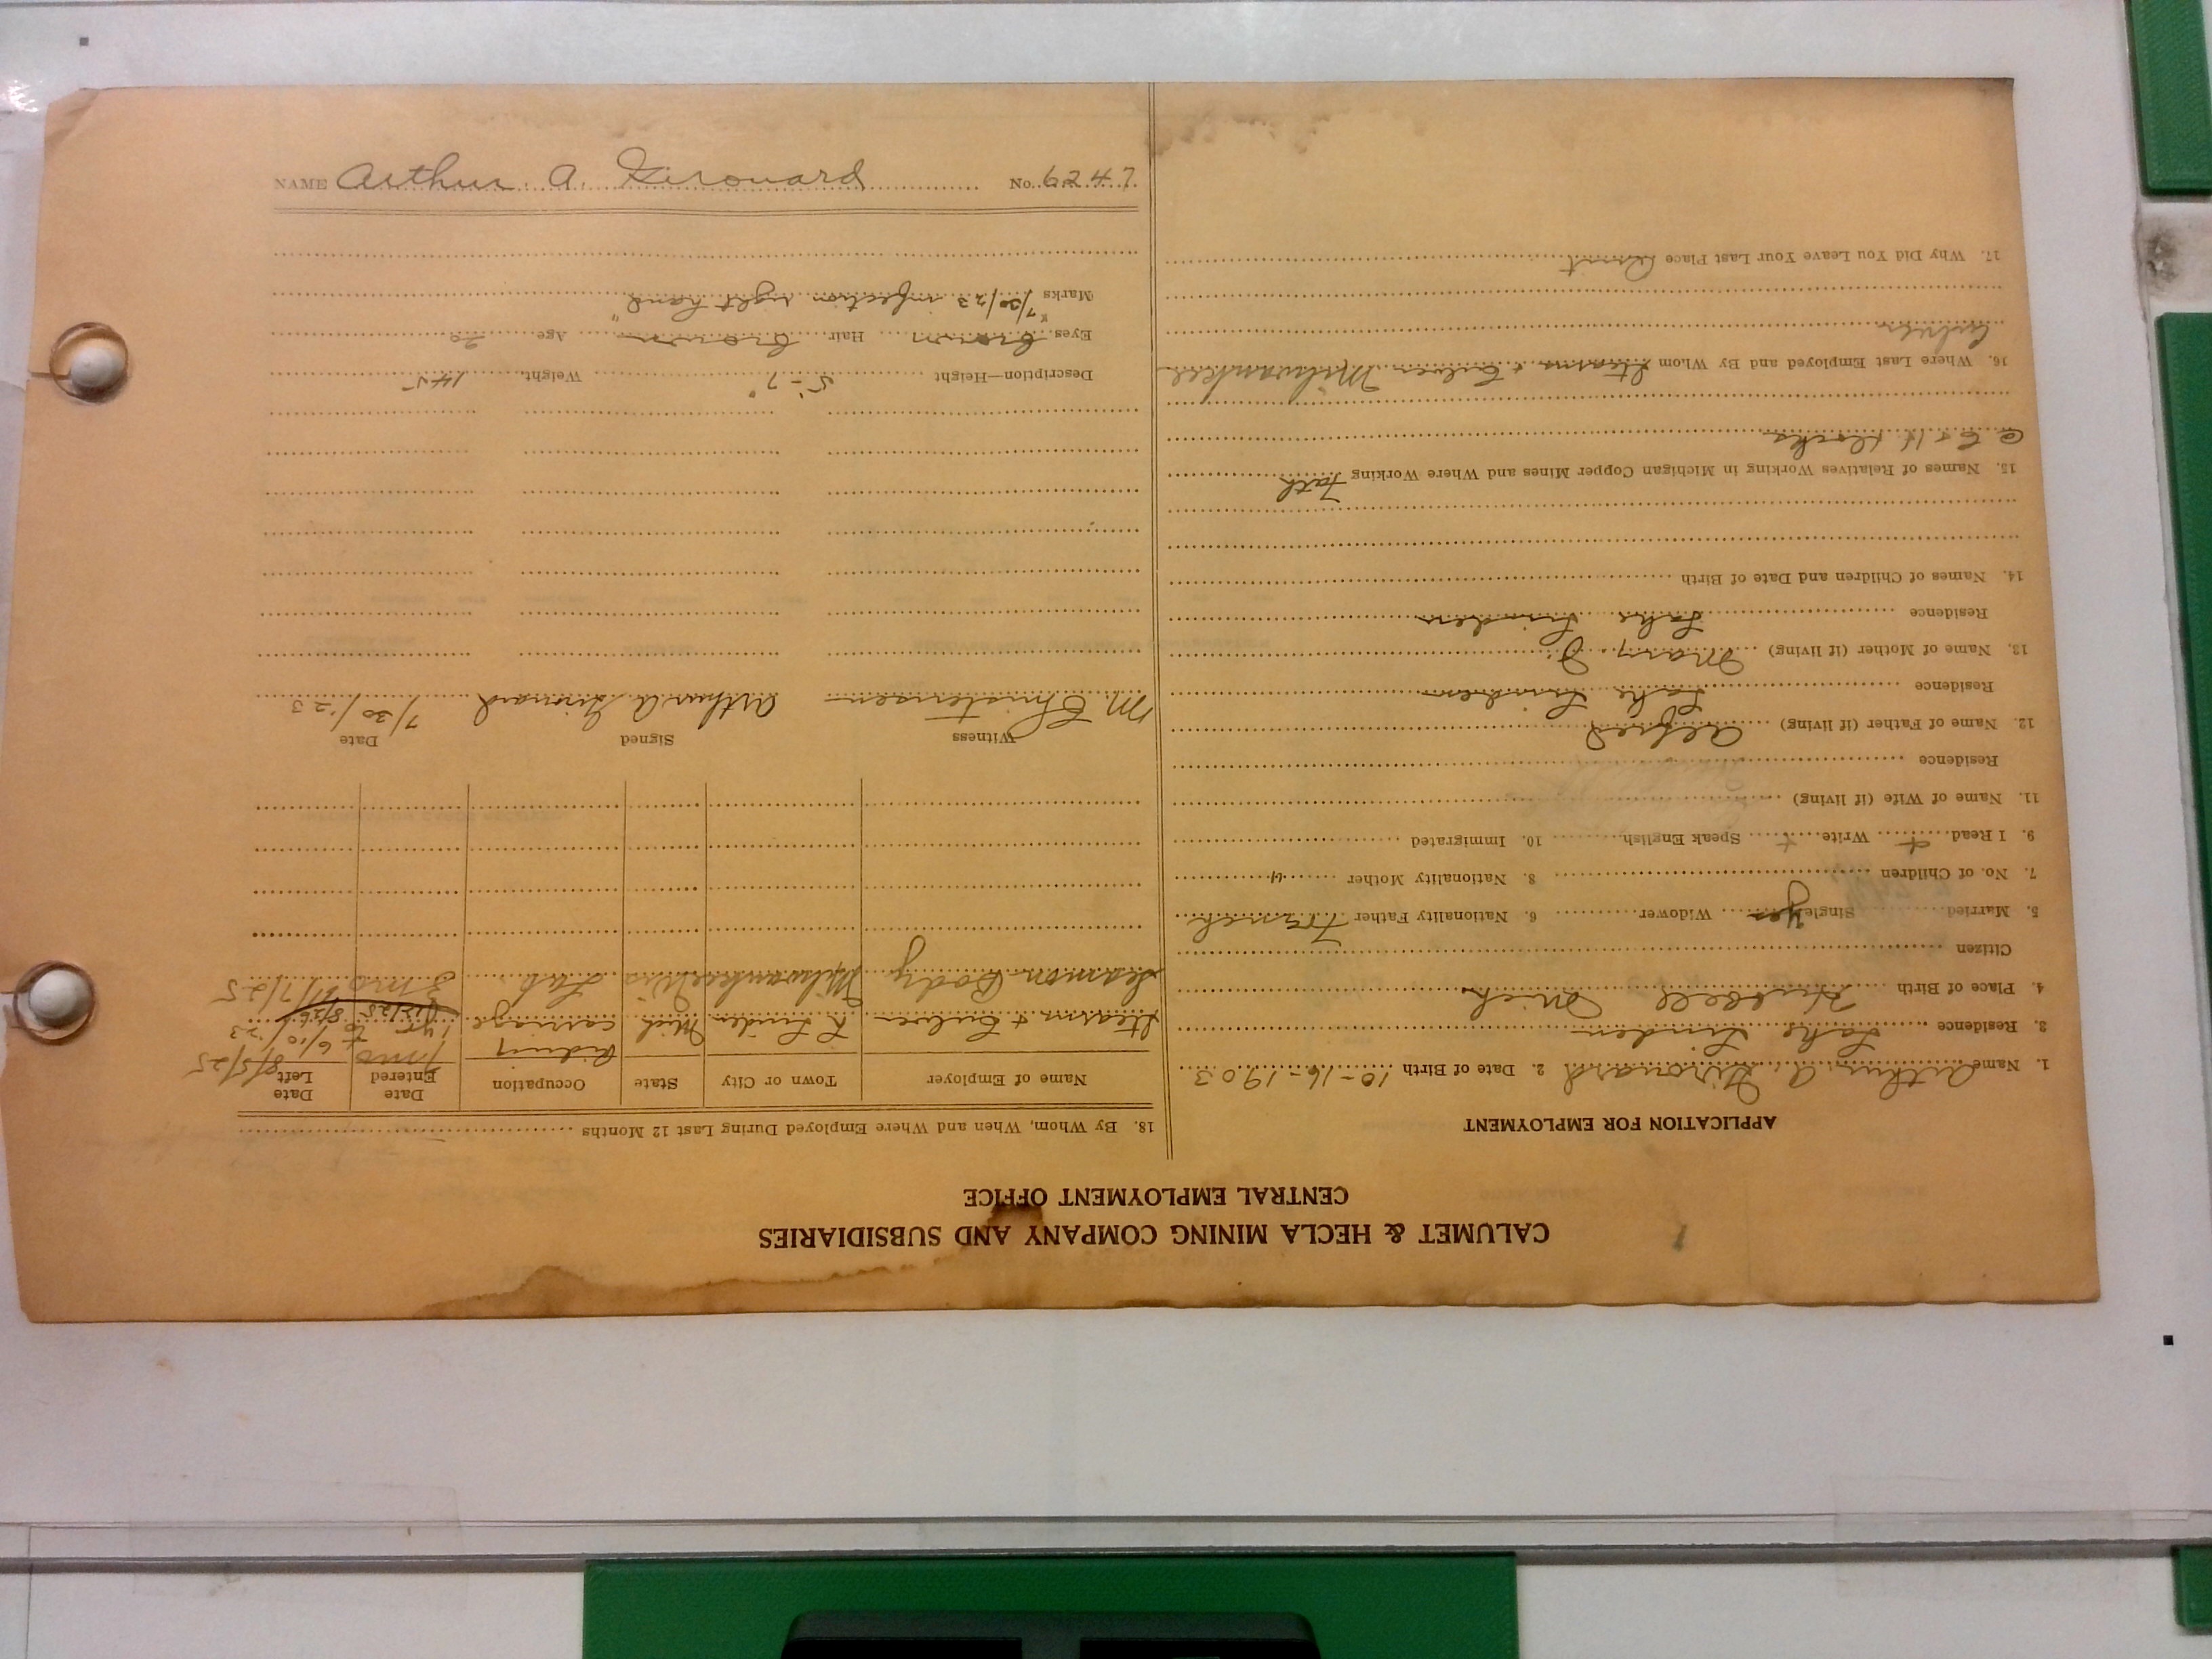 CALUMET & HECLA MINING COMPANY AND SUBSIDIARIES
CENTRAL EMPLOYMENT OFFICE
APPLICATION FOR EMPLOYMENT
1. Name Arthur A. Girouard 2. Date of Birth 10-16-1903
3. Residence Lake Linden
4. Place of Birth Hubbell Mich
Citizen
5. Married Single yes Widower 6. Nationality Father French
7. No. of Children 8. Nationality Mother "
9. I Read + Write + Speak English 10. Immigrated
11. Name of Wife (if living)
Residence
12. Name of Father (if living) Alfred
Residence Lake Linden
13. Name of Mother (if living) Mary J.
Residence Lake Linden
14. Names of Children and Date of Birth
15. Names of Relatives Working in Michigan Copper Mines and Where Working Fath
C & H
16. Where Last Employed and By Whom Stearns & Culver Milwaukee
Culver
17. Why Did You Leave Your Last Place
18. By Whom, When and Where Employed During Last 12 Months
Name of Employer Town or City State Occupation Date Entered Date Left
7 mo 8/5/25
Stearns & Culver L Linden Mich Riding carriage 1 yr 6/10/23
Seaman Body Milwaukee Wis Lab. 3 mo 7/25
Witness Signed Date
M. Christensen Arthur A Girouard 7/30/23
Description—Height 5'-7" Weight 145
Eyes brown Hair brown Age 20
Marks 7/30/23 "infection right hand"
NAME Arthur A. Girouard No. 6247